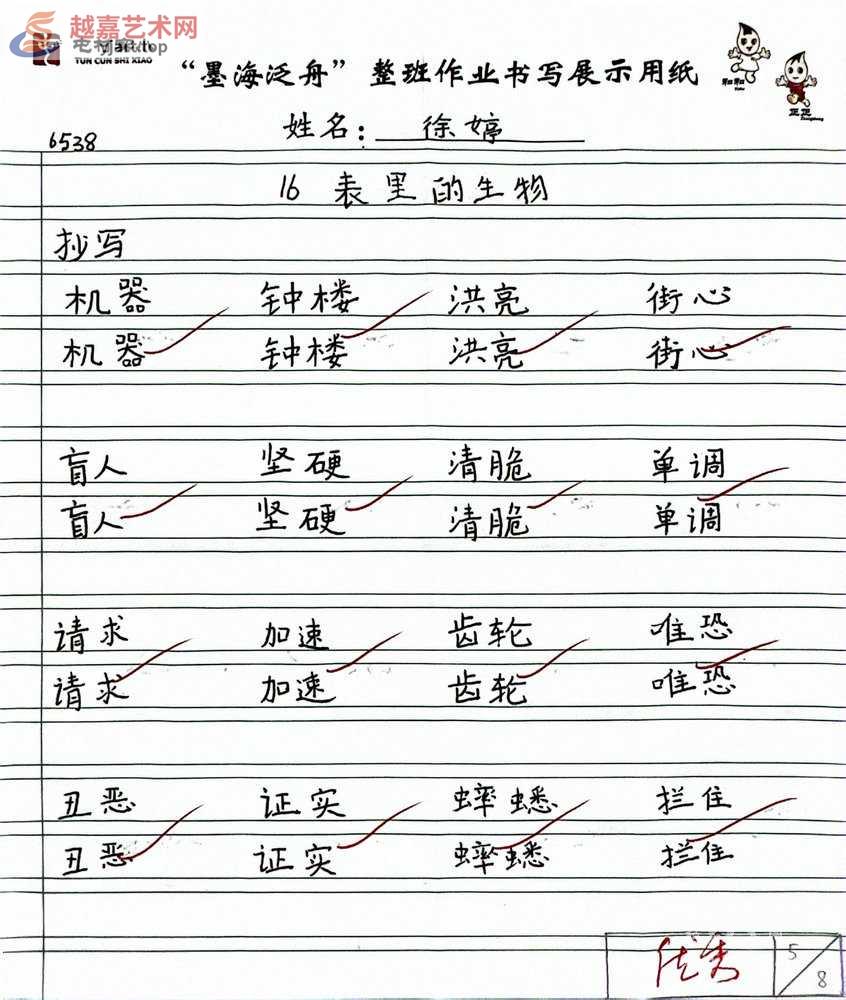 越嘉艺术网
yjart.top
TUN CUN SHI XIAO
“墨海泛舟”整班作业书写展示用纸
和和
正正
6538 姓名：徐婷
16 表里的生物
抄写
机器 钟楼 洪亮 街心
机器 钟楼 洪亮 街心
盲人 坚硬 清脆 单调
盲人 坚硬 清脆 单调
请求 加速 齿轮 唯恐
请求 加速 齿轮 唯恐
丑恶 证实 蟀蟋 拦住
丑恶 证实 蟀蟋 拦住
优秀 5/8